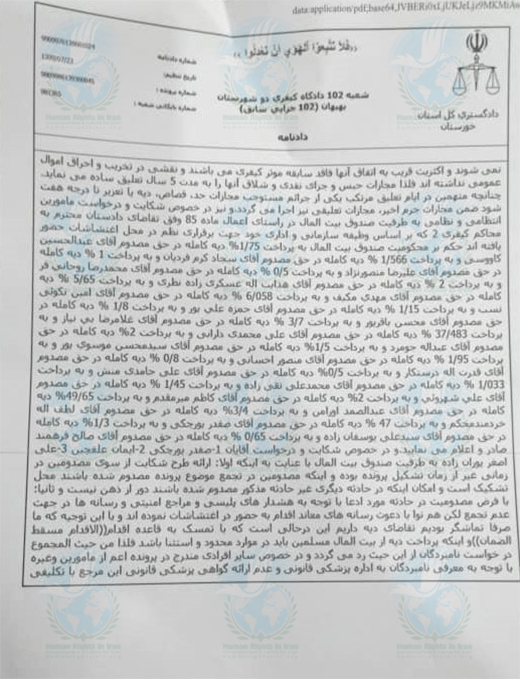 data:application/pdf;base64,JVBERi0xLjUKJeLjz9MKMiAw
((فلا تتبعوا الهوي ان تعدلوا))
شماره دادنامه
تاریخ تنظیم:
شماره پرونده :
شماره بایگانی شعبه :
شعبه 102 دادگاه کیفری دو شهرستان
بهبهان (102 جزایی سابق)
دادگستری کل استان
خوزستان
دادنامه
نمی شوند و اکثریت قریب به اتفاق آنها فاقد سابقه موثر کیفری می باشند و نقشی در تخریب و احراق اموال
عمومی نداشته اند فلذا مجازات حبس و جزای نقدی و شلاق آنها را به مدت 5 سال تعلیق ساده می نماید.
چنانچه متهمین در ایام تعلیق مرتکب یکی از جرائم مستوجب مجازات حد، قصاص، دیه یا تعزیر تا درجه هفت
شود ضمن مجازات جرم اخیر، مجازات تعلیقی نیز اجرا می گردد.و نیز در خصوص شکایت و درخواست مامورین
انتظامی و نظامی به طرفیت صندوق بیت المال در راستای اعمال ماده 85 وفق تقاضای دادستان محترم به
محاکم کیفری 2 که بر اساس وظیفه سازمانی و اداری خود جهت برقراری نظم در محل اغتشاشات حضور
یافته اند حکم بر محکومیت صندوق بیت المال به پرداخت 1/75% دیه کامله در حق مصدوم آقای عبدالحسین
کاووسی و به پرداخت 1/566 % دیه کامله در حق مصدوم آقای سجاد کرم فردیان و به پرداخت 1 % دیه کامله
در حق مصدوم آقای علیرضا منصورنژاد و به پرداخت 0/5 % دیه کامله در حق مصدوم آقای محمدرضا روحانی فر
و به پرداخت 2 % دیه کامله در حق مصدوم آقای هدایت اله عسکری زاده نظری و به پرداخت 5/65 % دیه
کامله در حق مصدوم آقای مهدی مکیف و به پرداخت 6/058 % دیه کامله در حق مصدوم آقای امین تکوئی
نسب و به پرداخت 1/15 % دیه کامله در حق مصدوم آقای حمزه علی پور و به پرداخت 1/8 % دیه کامله در
حق مصدوم آقای محسن باقرپور و به پرداخت 3/7 % دیه کامله در حق مصدوم آقای غلامرضا بی نیاز و به
پرداخت 37/483 % دیه کامله در حق مصدوم آقای علی محمدی دارابی و به پرداخت 2% دیه کامله در حق
مصدوم آقای عبداله جومرد و به پرداخت 1/5% دیه کامله در حق مصدوم آقای سیدمحسن موسوی پور و به
پرداخت 1/95 % دیه کامله در حق مصدوم آقای منصور احسانی و به پرداخت 0/8 % دیه کامله در حق مصدوم
آقای قدرت اله درستکار و به پرداخت 0/5% دیه کامله در حق مصدوم آقای علی حامدی منش و به پرداخت
1/033 % دیه کامله در حق مصدوم آقای محمدعلی نقی زاده و به پرداخت 1/45 % دیه کامله در حق مصدوم
آقای علی شهروئی و به پرداخت 2% دیه کامله در حق مصدوم آقای کاظم میرمقدم و به پرداخت 49/65% دیه
کامله در حق مصدوم آقای عبدالصمد اورامن و به پرداخت 3/4% دیه کامله در حق مصدوم آقای لطف اله
خردمندمحکم و به پرداخت 47 % دیه کامله در حق مصدوم آقای صفدر پورچکی و به پرداخت 1/3% دیه کامله
در حق مصدوم آقای سیدعلی یوسفان زاده و به پرداخت 0/65 % دیه کامله در حق مصدوم آقای صالح فرهمند
صادر و اعلام می نماید.و در خصوص شکایت و درخواست آقایان 1-صفدر پورچکی 2-ایمان علفچین 3-علی
اصغر پوران زاده به طرفیت صندوق بیت المال با عنایت به اینکه اولا: ارائه طرح شکایت از سوی مصدومین در
زمانی غیر از زمان تشکیل پرونده بوده و اینکه مصدومین در تجمع موضوع پرونده مصدوم شده باشند محل
تشکیک است و امکان اینکه در حادثه دیگری غیر حادثه مذکور مصدوم شده باشند دور از ذهن نیست و ثانیا:
با فرض مصدومیت در حادثه مورد ادعا با توجه به هشدار های پلیسی و مراجع امنیتی و رسانه ها در جهت
عدم تجمع لکن هم نوا با دعوت رسانه های معاند اقدام به حضور در اغتشاشات نموده اند و با این توجیه که ما
صرفا تماشگر بودیم تقاضای دیه داریم این درحالی است که با تمسک به قاعده اقدام((الاقدام مسقط
الضمان))و اینکه پرداخت دیه از بیت المال مسلمین باید در موارد محدود و استثنا باشد فلذا من حیث المجموع
در خواست نامبردگان از این حیث رد می گردد و در خصوص سایر افرادی مندرج در پرونده اعم از مامورین وغیره
با توجه به معرفی نامبردگان به اداره پزشکی قانونی و عدم ارائه گواهی پزشکی قانونی این مرجع با تکلیفی